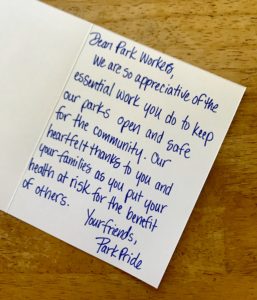 Dear Park Workers,
We are so appreciative of the
essential work you do to keep
our parks open and safe
for the community. Our
heartfelt thanks to you and
your families as you put your
health at risk for the benefit
of others.
Your friends,
Park Pride